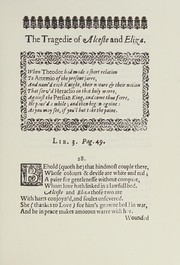 The Tragedie of Alceste and Eliza.
When Theodor had made a short relation
To Artemio of the present jarre,
And nam'd each Knight, their nature & their nation
That serv'd Heraclio in that holy warre,
Against the Persian King, and come thus farre,
He paus'd a while; and then beg in againe:
As you may see, if you'l but take the paine.
LIB. 3. Pag. 49.
28.
BEhold (quoth he) that hindmost couple there,
Whose colours & devise are white and red,
A paire for gentlenesse without compare,
Whom love hath linked in a lawfull bed.
Alceste and Eliza those two are
With hearts conjoyn'd, and soules unsevered.
She (thanks to Love) for him's growne bred in war,
And he in peace makes amorous warre with her.
Wounded